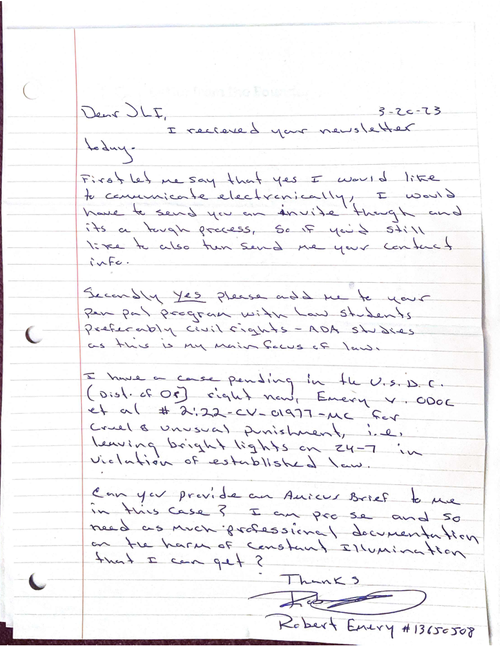 Dear JLI, 3-20-23
I recieved your newsletter
today.
First let me say that yes I would like
to communicate electronically, I would
have to send you an invite though and
its a tough process, so if you'd still
like to also then send me your contact
info.
Secondly yes please add me to your
pen pal program with law students
preferably civil rights - ADA studies
as this is my main focus of law.
I have a case pending in the U.S.D.C.
(Dist. of Or) right now, Emery v. ODOC
et al # 2:22-CV-01977-MC for
cruel & unusual punishment, i.e.
leaving bright lights on 24-7 in
violation of established law.
Can you provide an Amicus Brief to me
in this case? I am pro se and so
need as much professional documentation
on the harm of constant Illumination
that I can get?
Thanks
Robert Emery #13650508